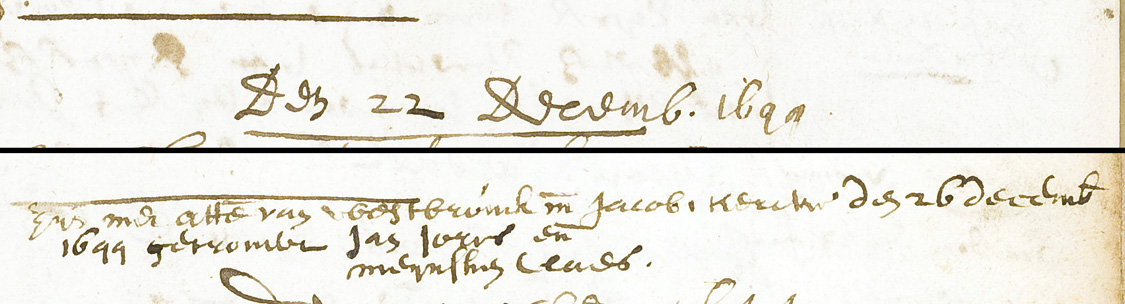 Den 22 Decemb. 1699
zijn met atte van Westbrouck in Jacobi kercke den 26 decemb
1699 getrouwt Jan Jorris en
Meynsken Claes.